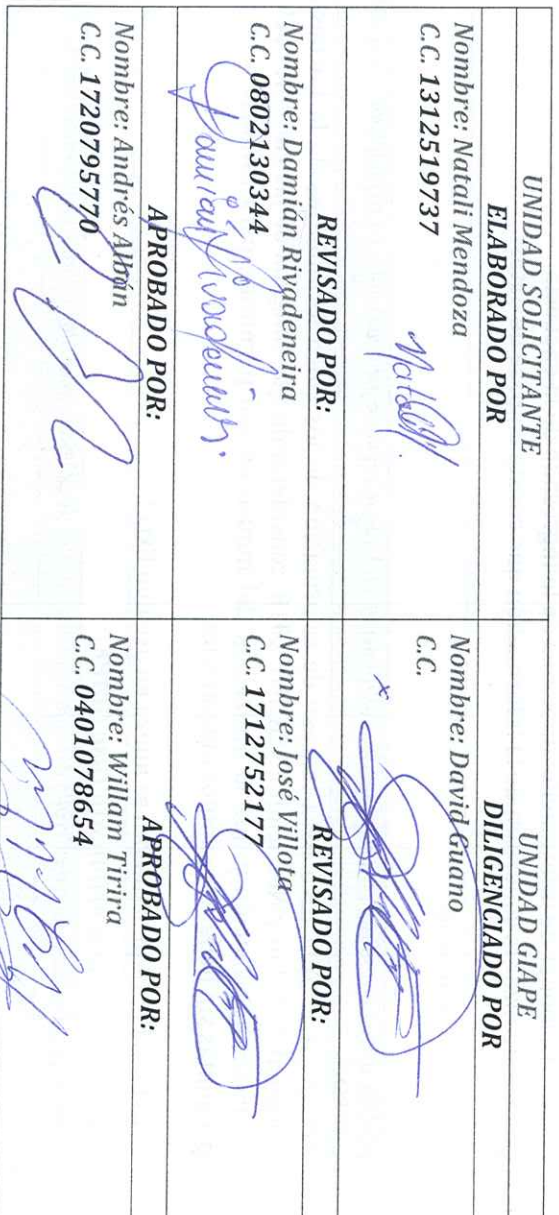 UNIDAD SOLICITANTE
UNIDAD GIAPE
ELABORADO POR
DILIGENCIADO POR
Nombre: Natali Mendoza
C.C. 1312519737
Nombre: David Guano
C.C.
x
REVISADO POR:
REVISADO POR:
Nombre: Damián Rivadeneira
C.C. 0802130344
Damián Rivadeneira
Nombre: José Villota
C.C. 1712752177
APROBADO POR:
APROBADO POR:
Nombre: Andrés Albán
C.C. 1720795770
Nombre: Willam Tirira
C.C. 0401078654